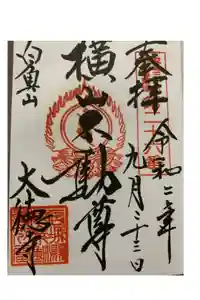 奉拝
令和二年
九月二十三日
横山不動尊
白魚山
大徳寺